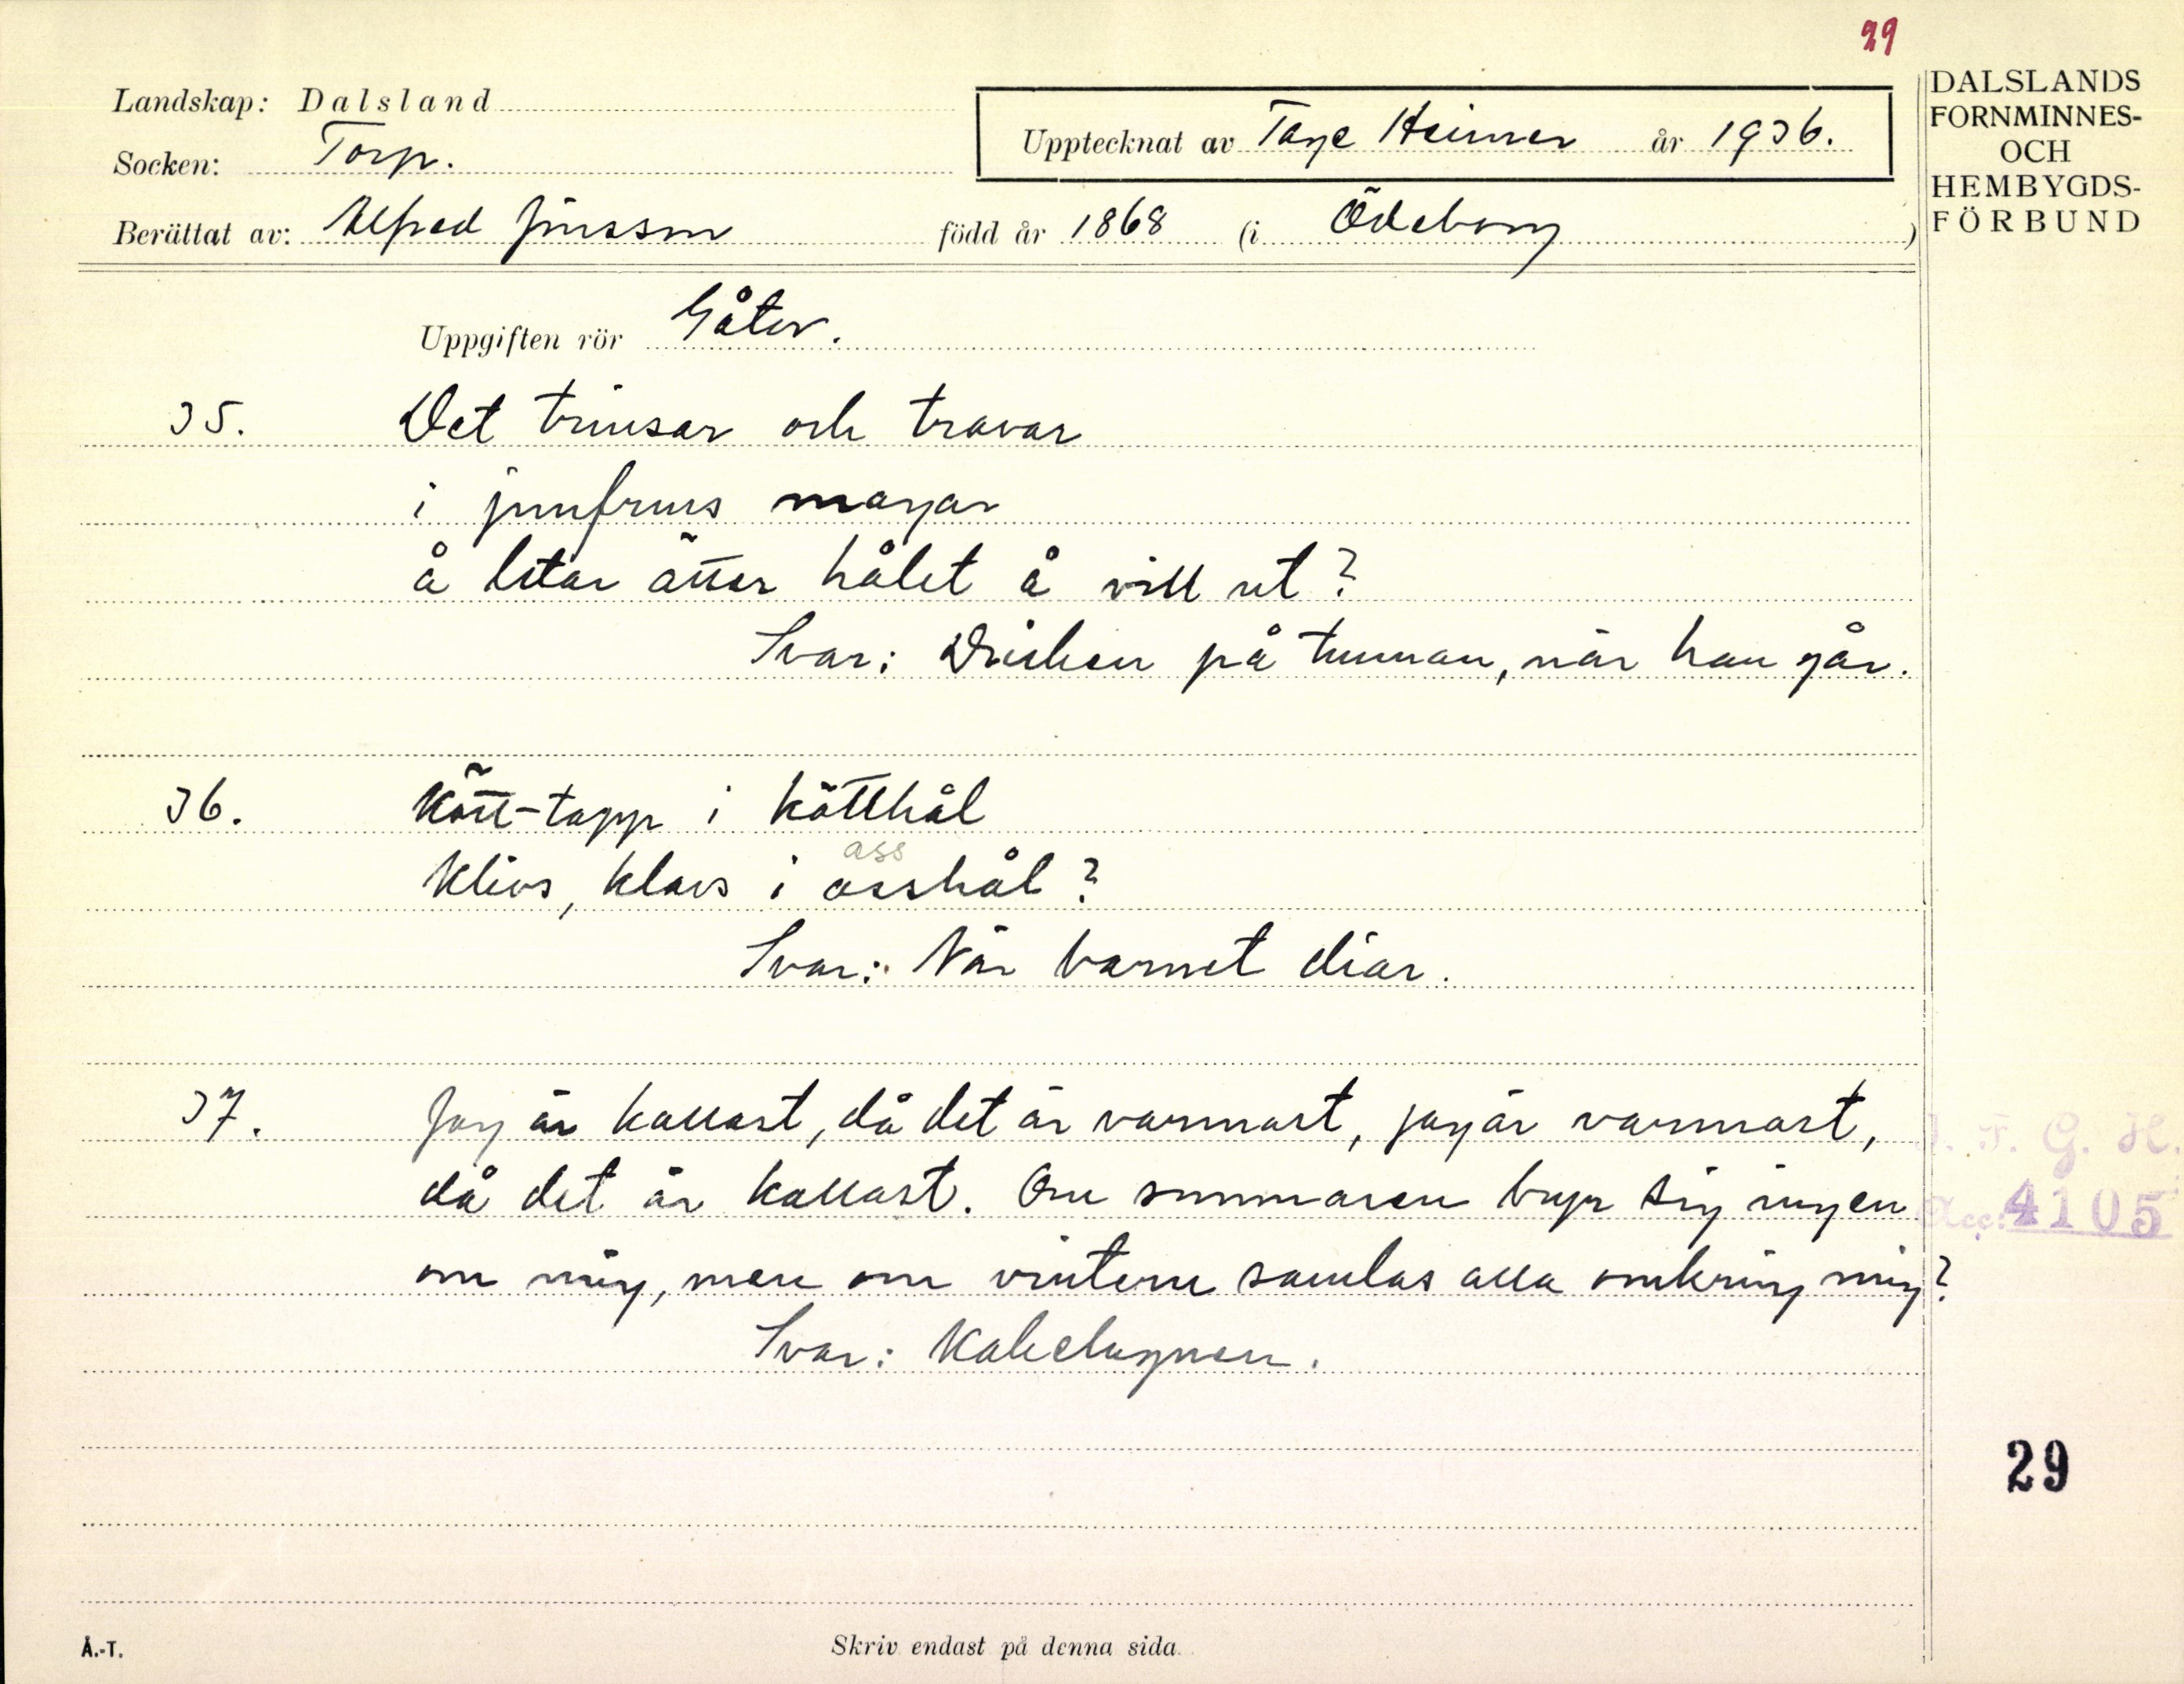 29
Landskap: Dalsland
Socken: Torp.
Upptecknat av Tage Heimer år 1936.
Berättat av: Alfred Jönsson född år 1868 (i Ödeborg)
DALSLANDS
FORNMINNES-
OCH
HEMBYGDS-
FÖRBUND
Uppgiften rör Gåtor.
35. Det trinsar och travar
i jungfruns magar
å letar ätter hålet å vill ut?
Svar: Drickan på tunnan, när han går.
36. Kött-tapp i kötthål
ass
klivs, klavs i asshål?
Svar: När barnet diar.
37. Jag är kallast, då det är varmast, jag är varmast,
då det är kallast. Om sommaren bryr sig ingen
om mig, men om vintern samlas alla omkring mig?
Svar: Kakelugnen.
Acc: 4105
29
Å.-T.
Skriv endast på denna sida.